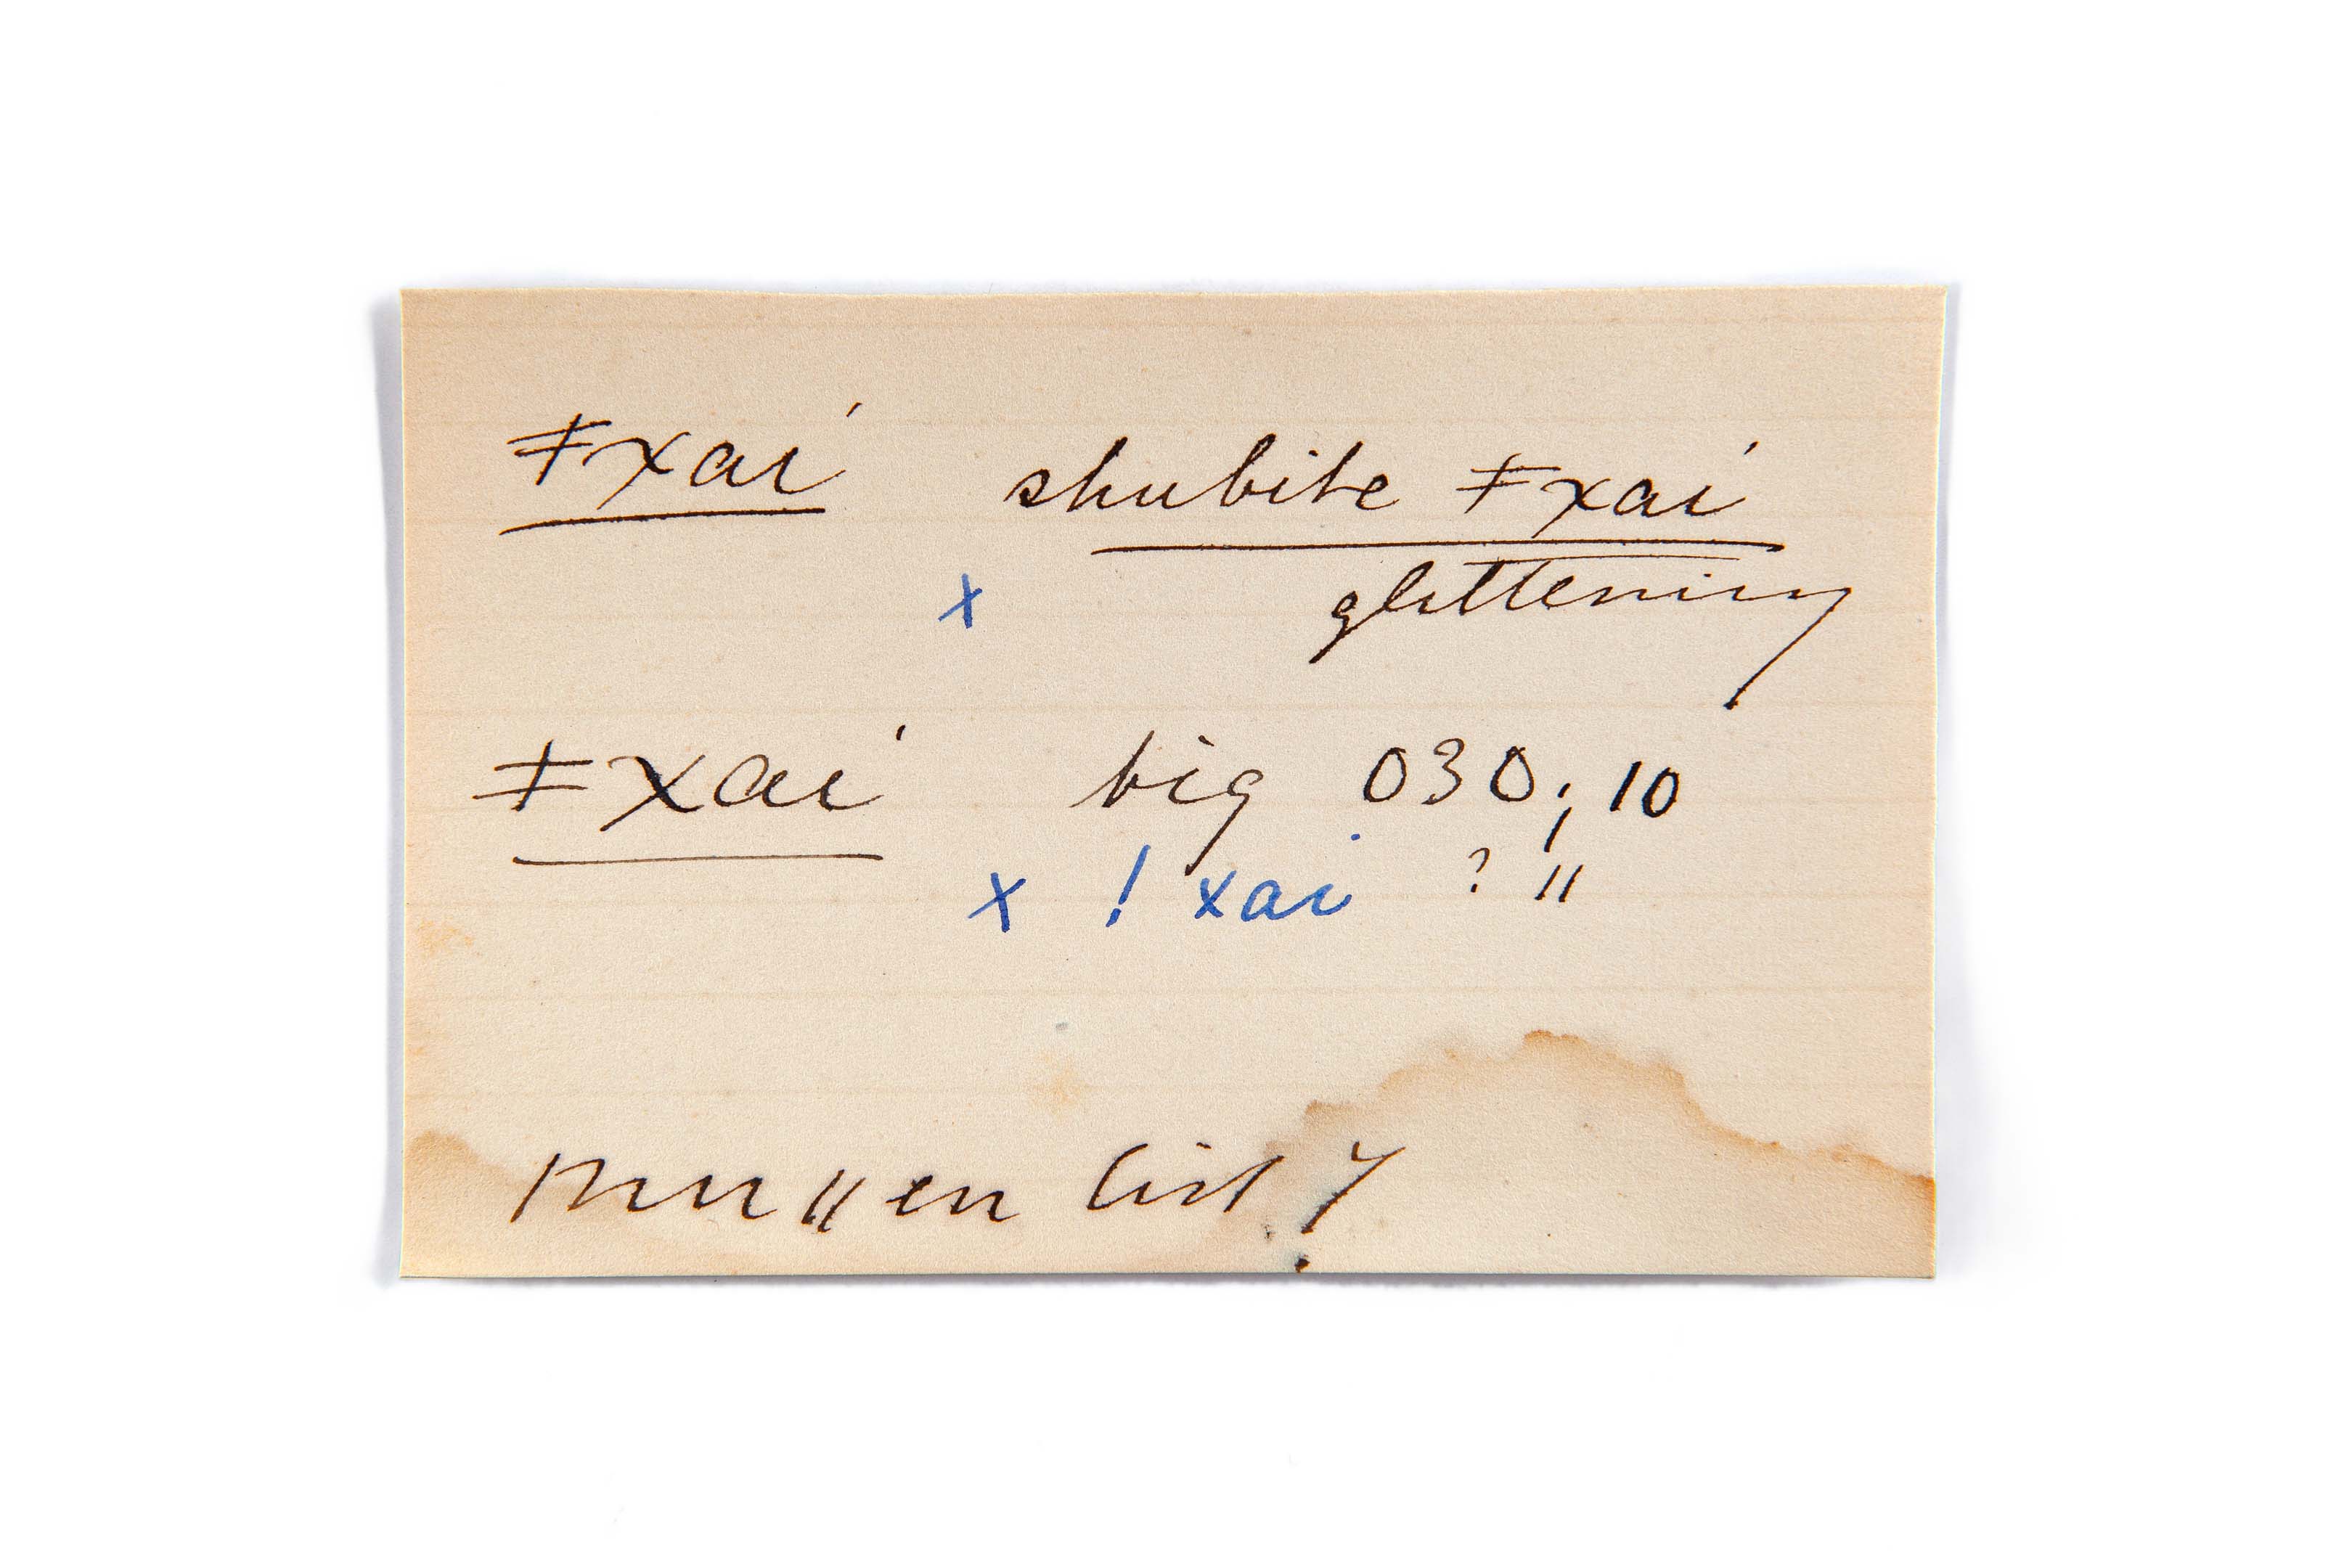 ǂxai shubite ǂxai
x glittering
ǂxai big 030; 10
x ! xai ? "
nu ǁen list 7